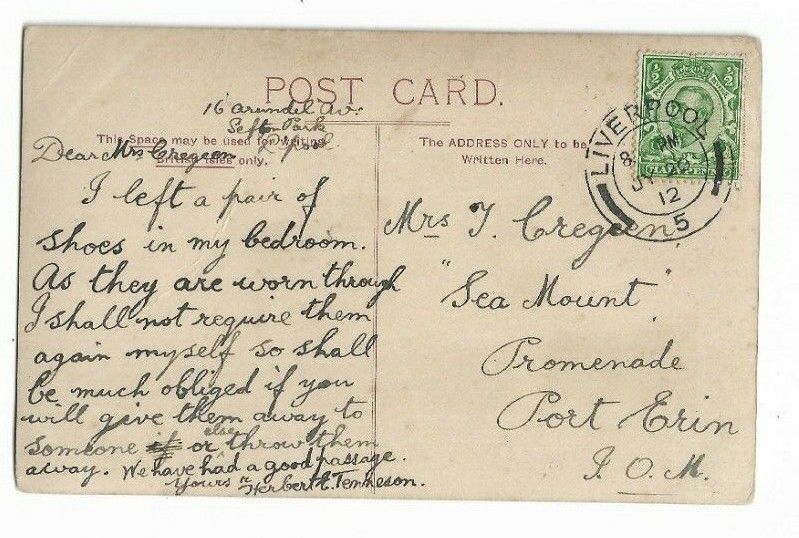 POST CARD.
16 Arundel Av:
Sefton Park
L'pool
This Space may be used for Writing
British Isles only.
Dear Mrs Cregeen
I left a pair of
shoes in my bedroom.
As they are worn through
I shall not require them
again myself so shall
be much obliged if you
will give them away to
someone if or else throw them
away. We have had a good passage.
Yours
Herbert E. Tenneson.
The ADDRESS ONLY to be
Written Here.
LIVERPOOL
8 PM
12
5
Mrs J. Cregeen,
"Sea Mount"
Promenade
Port Erin
I. O. M.